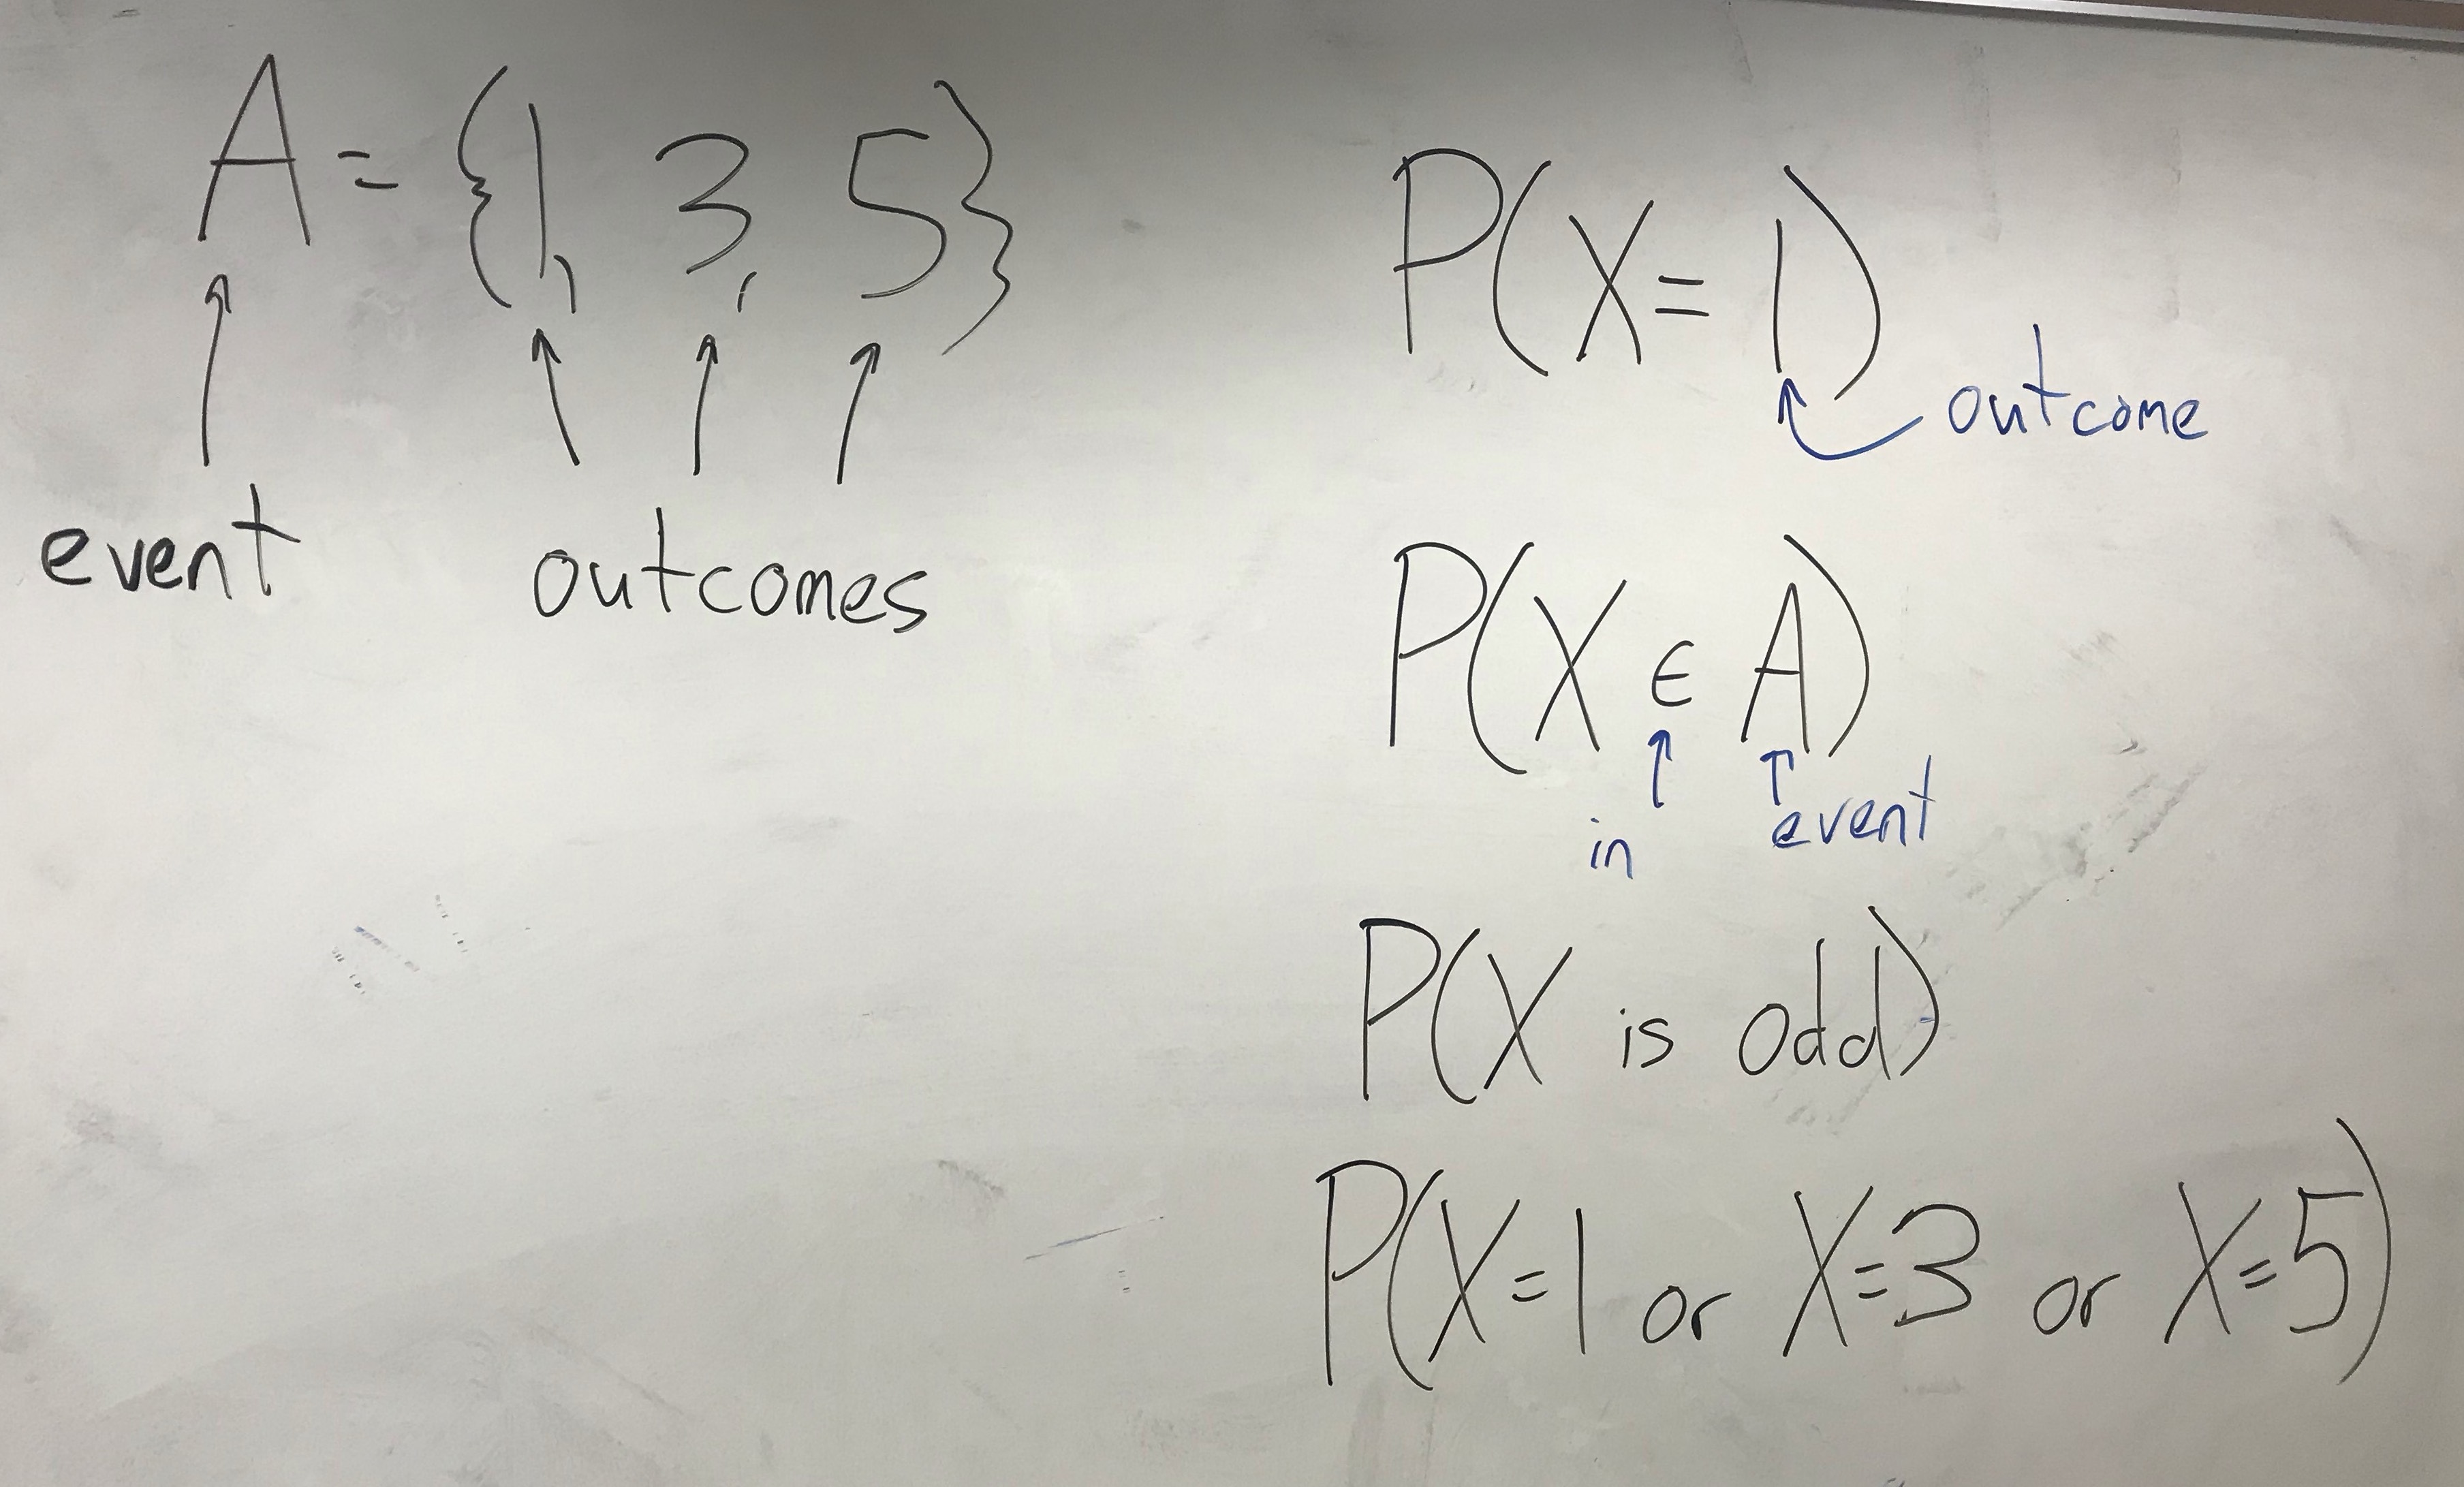 A = {1, 3, 5}
event outcomes
P(X = 1)
outcome
P(X ∈ A)
in event
P(X is odd)
P(X=1 or X=3 or X=5)